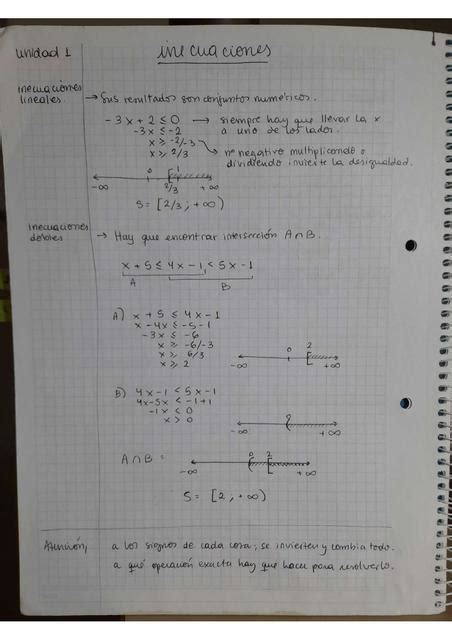 Unidad 1
inecuaciones
inecuaciones lineales
→ Sus resultados son conjuntos numéricos.
-3x + 2 ≤ 0 → siempre hay que llevar la x
-3x ≤ -2 a uno de los lados.
x ≥ -2/-3 → nº negativo multiplicando o
x ≥ 2/3 dividiendo invierte la desigualdad.
0 1
-∞ 2/3 +∞
S = [2/3 ; +∞)
inecuaciones dobles
→ Hay que encontrar intersección A∩B.
x + 5 ≤ 4x - 1 < 5x - 1
A B
A) x + 5 ≤ 4x - 1
x - 4x ≤ -5 - 1
-3x ≤ -6
x ≥ -6/-3
x ≥ 6/3
x ≥ 2
0 2
-∞ +∞
B) 4x - 1 < 5x - 1
4x - 5x < -1 + 1
-1x < 0
x > 0
-∞ +∞
A∩B =
0 2
-∞ +∞
S = [2 ; +∞)
Atención, a los signos de cada cosa; se invierten y cambia todo.
a qué operación exacta hay que hacer para resolverlo.